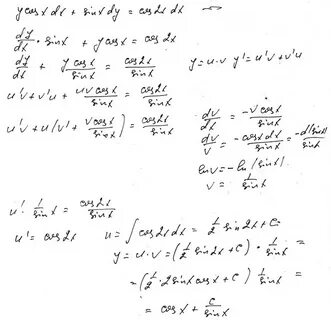 y cosx dx + sinx dy = cos2x dx ⇔
dy/dx · sinx + y cosx = cos2x
dy/dx + y cosx/sinx = cos2x/sinx
y = u·v y' = u'v + v'u
u'v + v'u + uv cosx/sinx = cos2x/sinx
u'v + u(v' + v cosx/sinx) = cos2x/sinx
dv/dx = -v cosx/sinx
dv/v = -cosx dx/sinx = -d(sinx)/sinx
ln v = -ln|sinx|
v = 1/sinx
u' · 1/sinx = cos2x/sinx
u' = cos2x
u = ∫ cos2x dx = 1/2 sin2x + C
y = u·v = (1/2 sin2x + C) · 1/sinx =
= (1/2 · 2 sinx cosx + C) 1/sinx =
= cosx + C/sinx